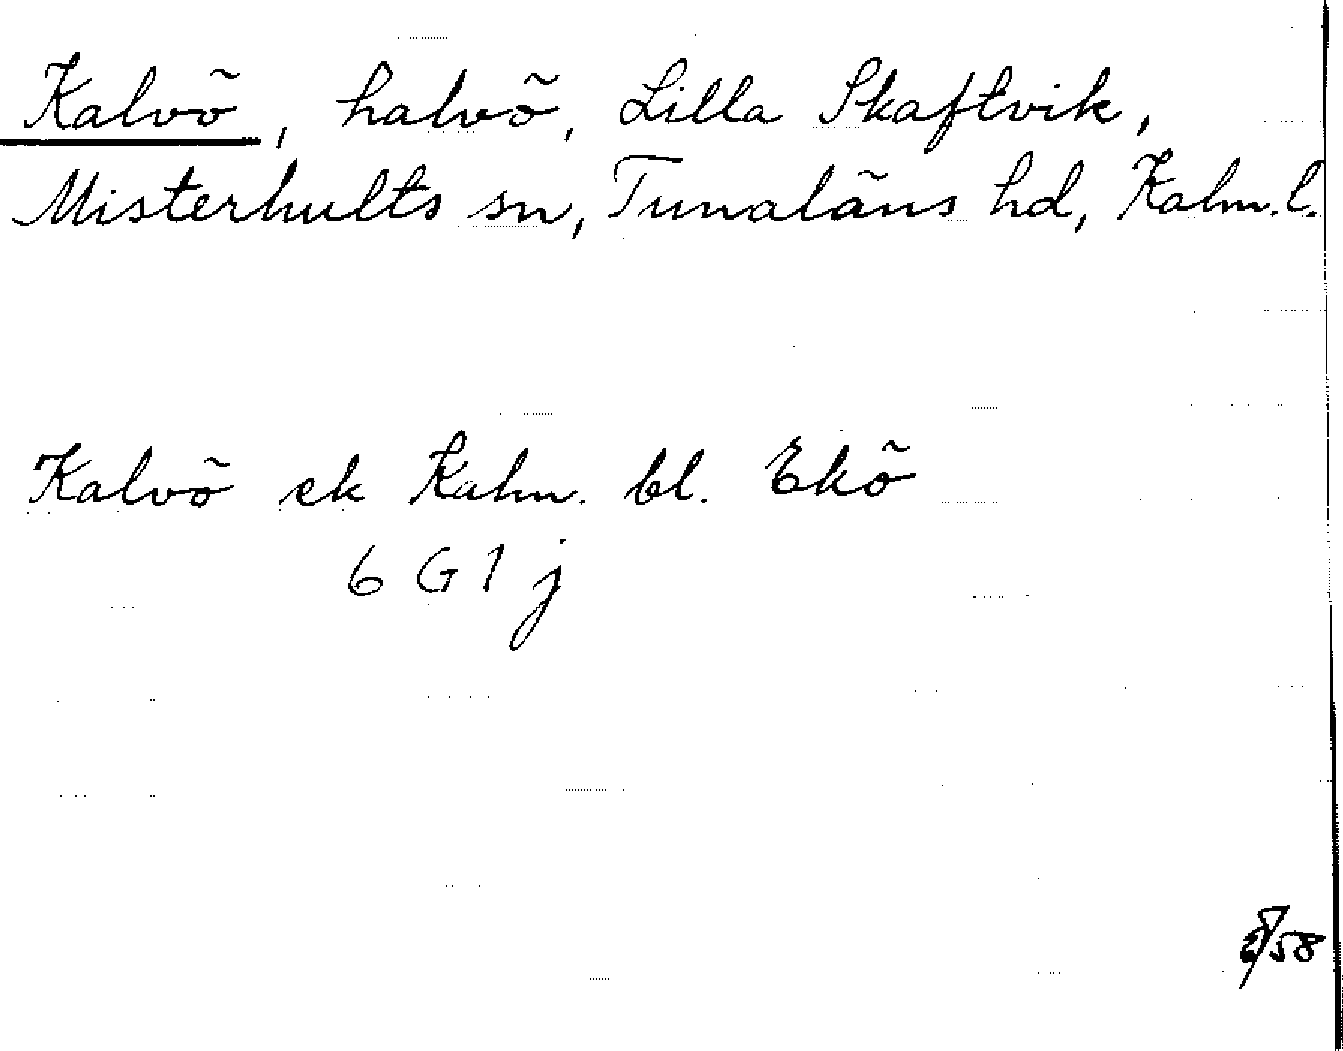 Kalvö, halvö, Lilla Skaftvik,
Misterhults sn, Tunaläns hd, Kalm. l.
Kalvö ek Kalm. bl. Ekö
6 G 1 j